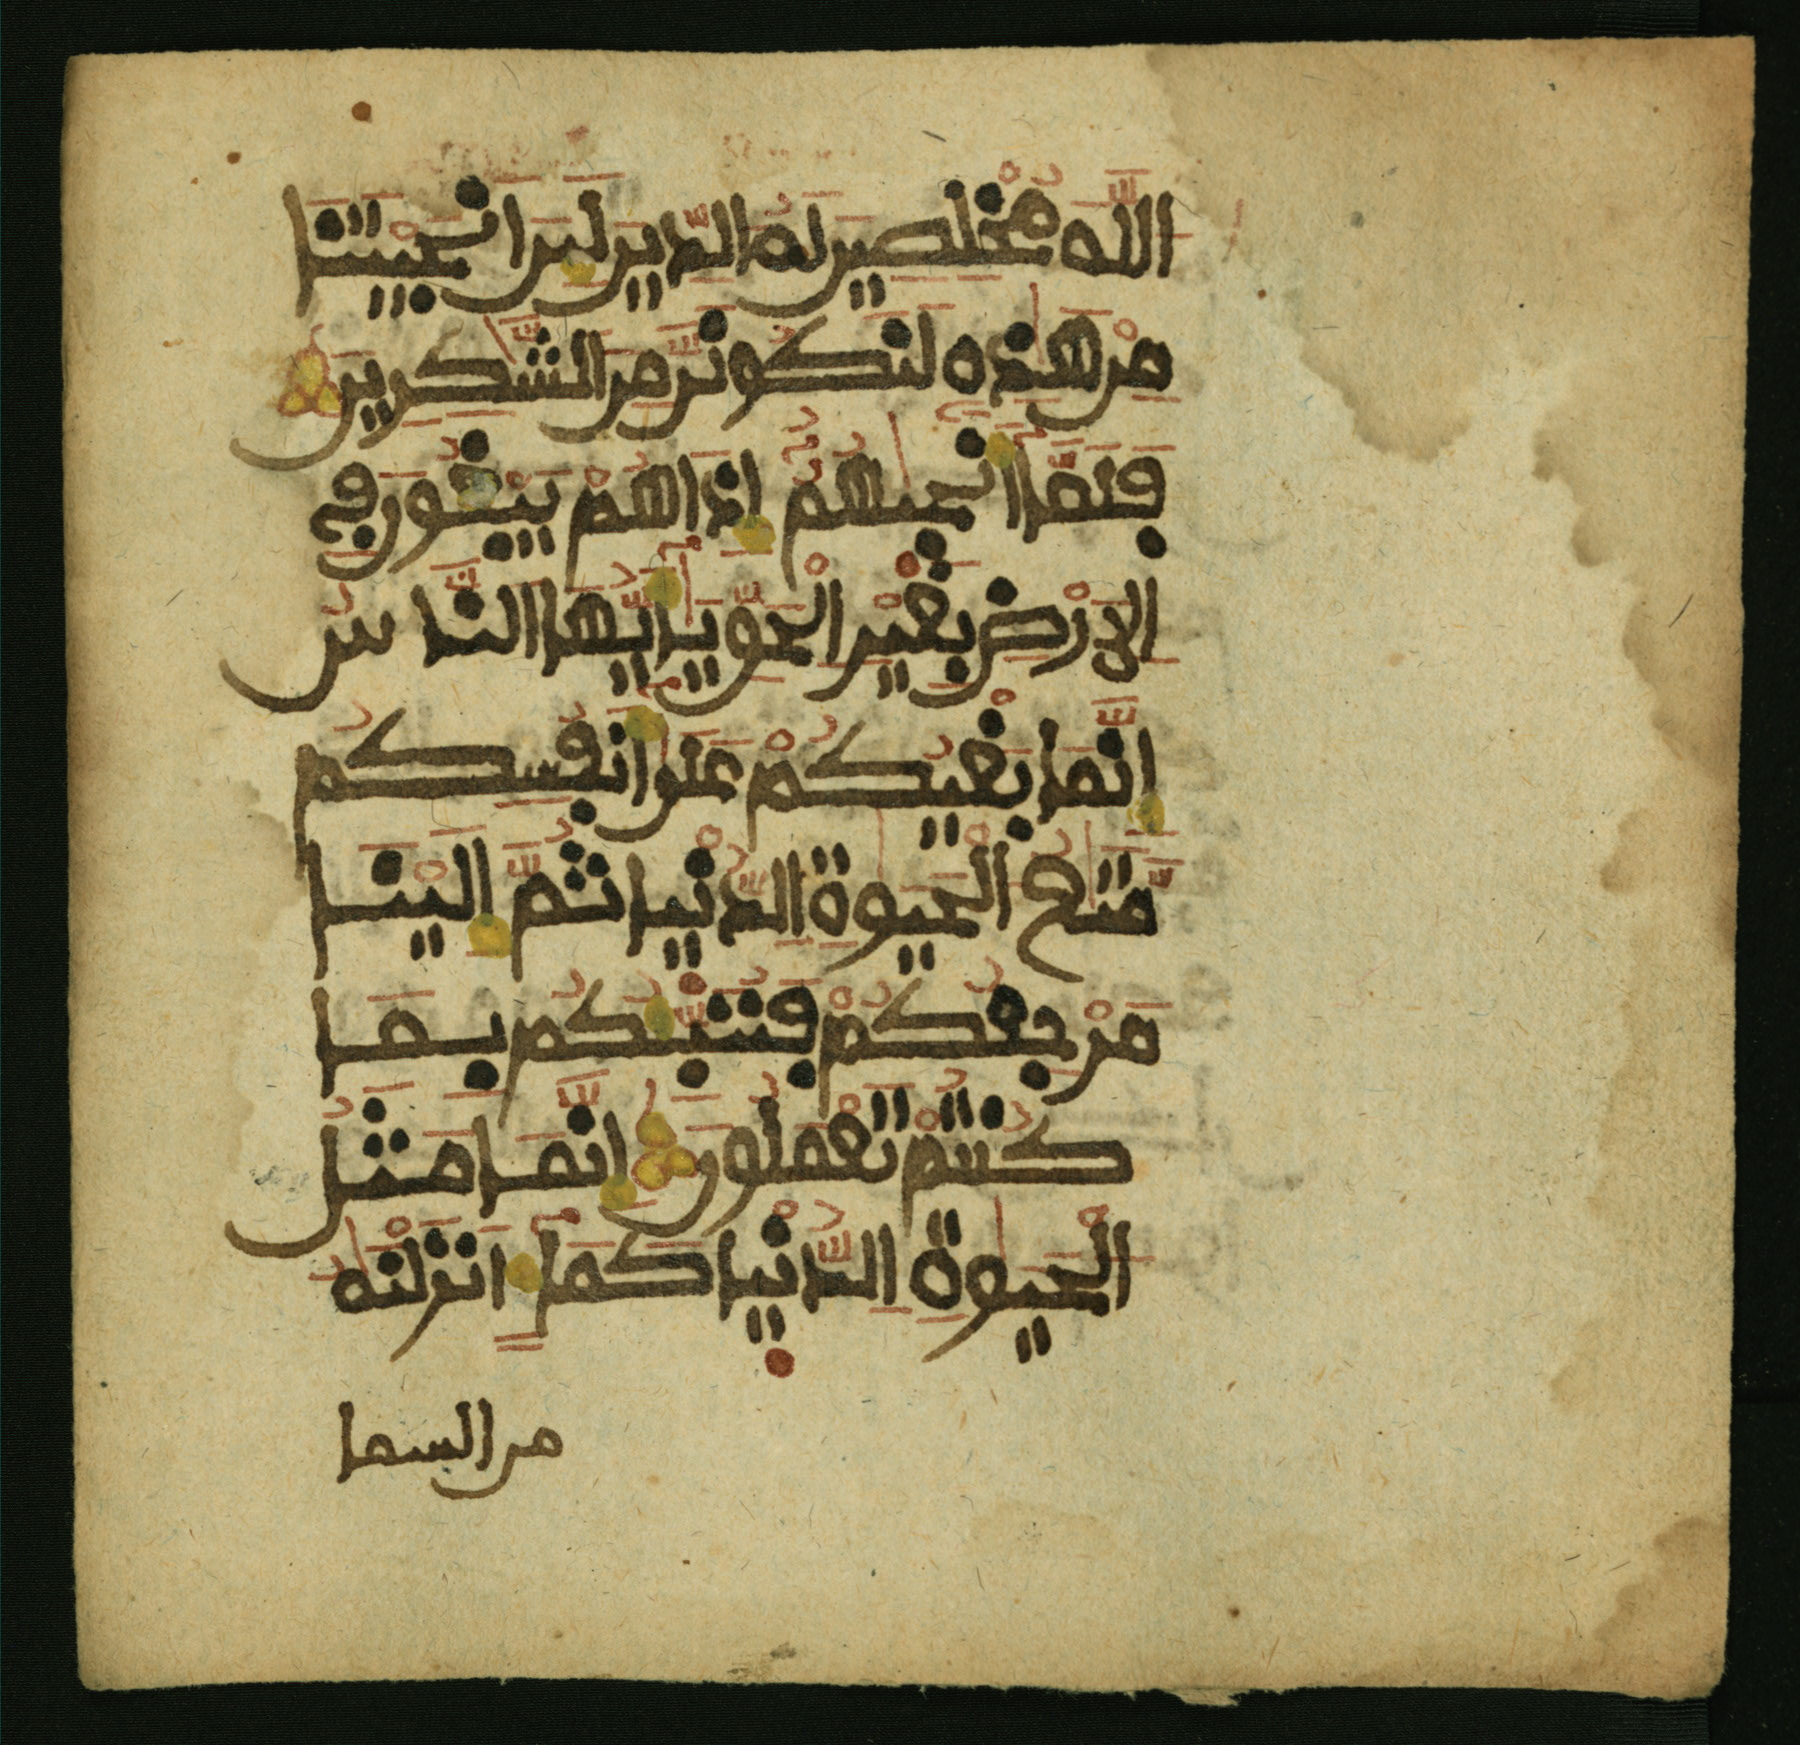 اللَّهَ مُخْلِصِينَ لَهُ الدِّينَ لَئِنَ اَنجَيْتَنَا
مِنْ هَٰذِهِ لَنَكُونَنَّ مِنَ الشَّٰكِرِينَ
فَلَمَّا أَنجَىٰهُمُ إِذَا هُمْ يَبْغُونَ فِى
الَارْضِ بِغَيْرِ الْحَقِّ يَٰأَيُّهَا النَّاسُ
إِنَّمَا بَغْيُكُمْ عَلَىٰ أَنفُسِكُم
مَّتَٰعُ الْحَيَوٰةِ الدُّنْيَا ثُمَّ إِلَيْنَا
مَرْجِعُكُمْ فَنُنَبِّئُكُم بِمَا
كُنتُمْ تَعْمَلُونَ إِنَّمَا مَثَلُ
الْحَيَوٰةِ الدُّنْيَا كَمَآءٍ أَنزَلْنَٰهُ
من السما